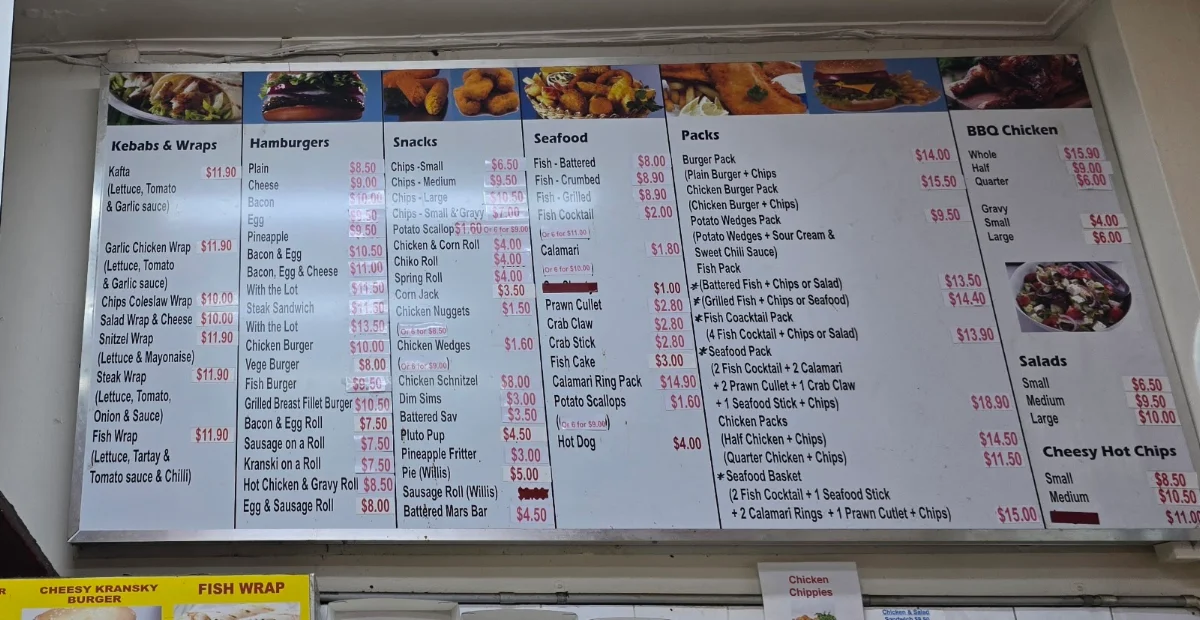 Kebabs & Wraps
Kafta $11.90
(Lettuce, Tomato
& Garlic sauce)
Garlic Chicken Wrap $11.90
(Lettuce, Tomato
& Garlic sauce)
Chips Coleslaw Wrap $10.00
Salad Wrap & Cheese $10.00
Snitzel Wrap $11.90
(Lettuce & Mayonaise)
Steak Wrap $11.90
(Lettuce, Tomato,
Onion & Sauce)
Fish Wrap $11.90
(Lettuce, Tartay &
Tomato sauce & Chilli)
Hamburgers
Plain $8.50
Cheese $9.00
Bacon $10.00
Egg $9.50
Pineapple $9.50
Bacon & Egg $10.50
Bacon, Egg & Cheese $11.00
With the Lot $11.50
Steak Sandwich $11.50
With the Lot $13.50
Chicken Burger $10.00
Vege Burger $8.00
Fish Burger $9.50
Grilled Breast Fillet Burger $10.50
Bacon & Egg Roll $7.50
Sausage on a Roll $7.50
Kranski on a Roll $7.50
Hot Chicken & Gravy Roll $8.50
Egg & Sausage Roll $8.00
Snacks
Chips -Small $6.50
Chips - Medium $9.50
Chips - Large $10.50
Chips - Small & Gravy $7.00
Potato Scallop $1.60 Or 6 for $9.00
Chicken & Corn Roll $4.00
Chiko Roll $4.00
Spring Roll $4.00
Corn Jack $3.50
Chicken Nuggets $1.50
(Or 6 for $8.50)
Chicken Wedges $1.60
(Or 6 for $9.00)
Chicken Schnitzel $8.00
Dim Sims $3.00
Battered Sav $3.50
Pluto Pup $4.50
Pineapple Fritter $3.00
Pie (Willis) $5.00
Sausage Roll (Willis)
Battered Mars Bar $4.50
Seafood
Fish - Battered $8.00
Fish - Crumbed $8.90
Fish - Grilled $8.90
Fish Cocktail $2.00
(Or 6 for $11.00)
Calamari $1.80
(Or 6 for $10.00)
$1.00
Prawn Cullet $2.80
Crab Claw $2.80
Crab Stick $2.80
Fish Cake $3.00
Calamari Ring Pack $14.90
Potato Scallops $1.60
(Or 6 for $9.00)
Hot Dog $4.00
Packs
Burger Pack $14.00
(Plain Burger + Chips
Chicken Burger Pack $15.50
(Chicken Burger + Chips)
Potato Wedges Pack $9.50
(Potato Wedges + Sour Cream &
Sweet Chili Sauce)
Fish Pack
*(Battered Fish + Chips or Salad) $13.50
*(Grilled Fish + Chips or Seafood) $14.40
*Fish Coacktail Pack
(4 Fish Cocktail + Chips or Salad) $13.90
*Seafood Pack
(2 Fish Cocktail + 2 Calamari
+ 2 Prawn Cullet + 1 Crab Claw
+ 1 Seafood Stick + Chips) $18.90
Chicken Packs
(Half Chicken + Chips) $14.50
(Quarter Chicken + Chips) $11.50
*Seafood Basket
(2 Fish Cocktail + 1 Seafood Stick
+ 2 Calamari Rings + 1 Prawn Cutlet + Chips) $15.00
BBQ Chicken
Whole $15.90
Half $9.00
Quarter $6.00
Gravy
Small $4.00
Large $6.00
Salads
Small $6.50
Medium $9.50
Large $10.00
Cheesy Hot Chips
Small $8.50
Medium $10.50
$11.00
CHEESY KRANSKY
BURGER
FISH WRAP
Chicken
Chippies
Chicken & Salad